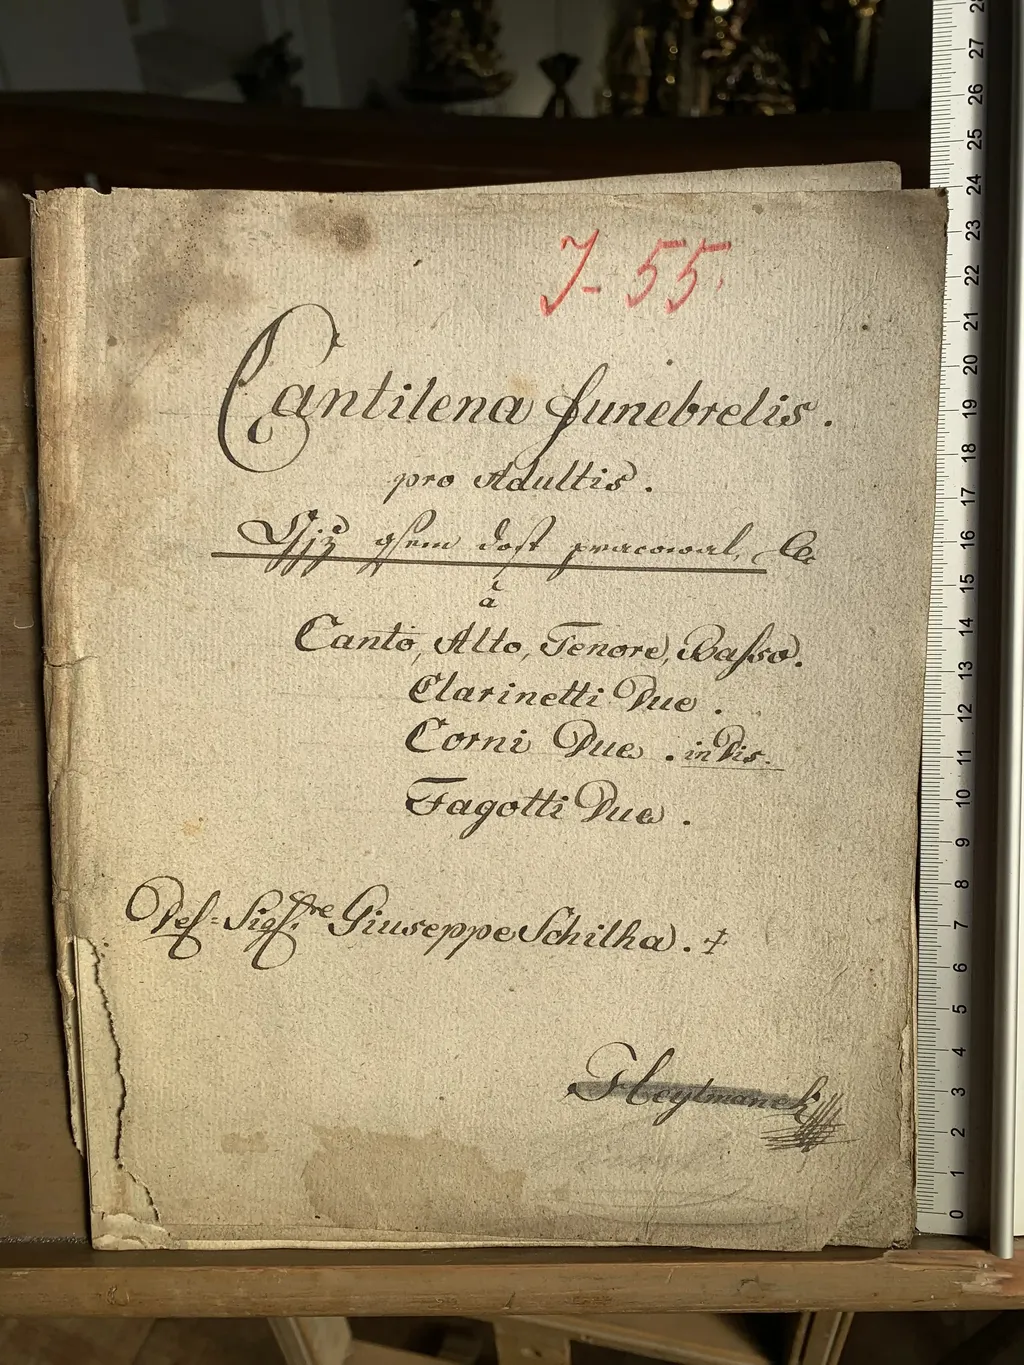 J-55.
Cantilena funebrelis.
pro Adultis.
Gjž gsem dost pracowal, &c
à
Canto, Alto, Tenore, Basso.
Clarinetti Due.
Corni Due. in Dis.
Fagotti Due.
Del= Sig:re Giuseppe Schilha. ‡
28
27
26
25
24
23
22
21
20
19
18
17
16
15
14
13
12
11
10
9
8
7
6
5
4
3
2
1
0